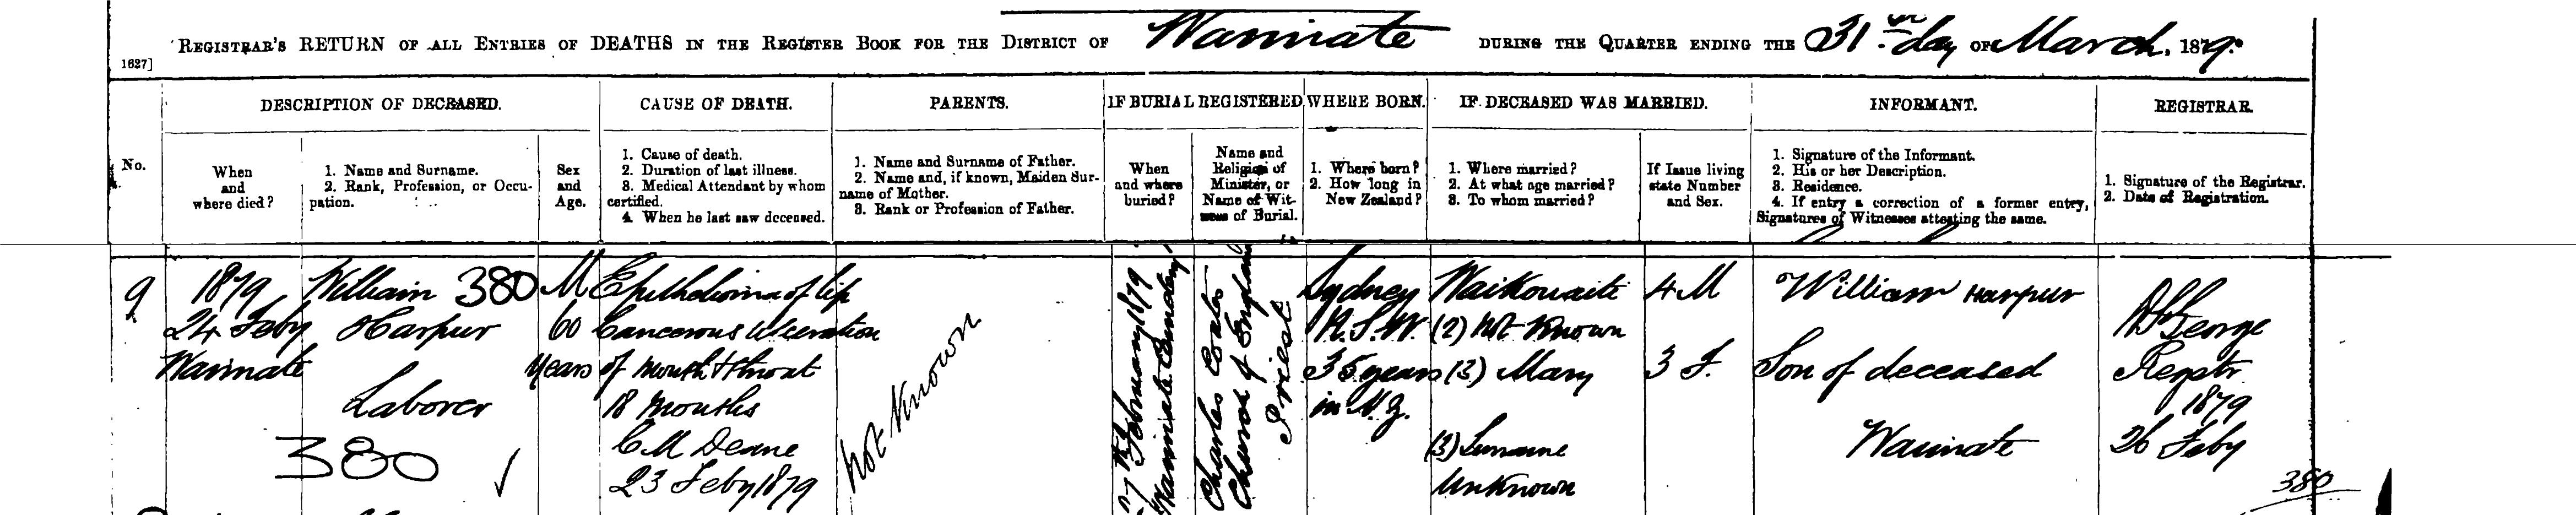 REGISTRAR'S RETURN OF ALL ENTRIES OF DEATHS IN THE REGISTER BOOK FOR THE DISTRICT OF Waimate DURING THE QUARTER ENDING THE 31st day OF March. 1879.
1627]
DESCRIPTION OF DECEASED.
CAUSE OF DEATH.
PARENTS.
IF BURIAL REGISTERED
WHERE BORN.
IF DECEASED WAS MARRIED.
INFORMANT.
REGISTRAR.
No.
When
and
where died?
1. Name and Surname.
2. Rank, Profession, or Occu-
pation.
Sex
and
Age.
1. Cause of death.
2. Duration of last illness.
3. Medical Attendant by whom
certified.
4. When he last saw deceased.
1. Name and Surname of Father.
2. Name and, if known, Maiden Sur-
name of Mother.
3. Rank or Profession of Father.
When
and where
buried?
Name and
Religion of
Minister, or
Name of Wit-
ness of Burial.
1. Where born?
2. How long in
New Zealand?
1. Where married?
2. At what age married?
3. To whom married?
If Issue living
state Number
and Sex.
1. Signature of the Informant.
2. His or her Description.
3. Residence.
4. If entry a correction of a former entry,
Signatures of Witnesses attesting the same.
1. Signature of the Registrar.
2. Date of Registration.
9
1879
24 Feby
Waimate
William 380
Harpur
Laborer
380
M
60
years
Epithelioma of lip
Cancerous ulceration
of mouth & throat
18 months
C M Deane
23 Feby 1879
Not Known
27th February 1879
Waimate Cemetery
Charles Coates
Church of England
Priest
Sydney
N.S.W.
35 years
in N.Z.
Waikouaiti
(2) Not Known
(3) Mary
(3) Surname
Unknown
4 M
3 F.
William Harpur
Son of deceased
Waimate
George
Regstr
1879
26 Feby
380